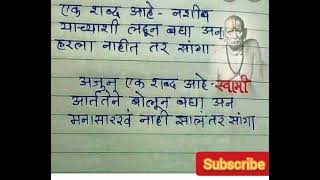 एक शब्द आहे - नशीब
याच्याशी लढून बघा अन्
हरला नाहीत तर सांगा
अजून एक शब्द आहे- स्वामी
आर्ततेने बोलून बघा अन
मनासारखं नाही झालं तर सांगा
Subscribe